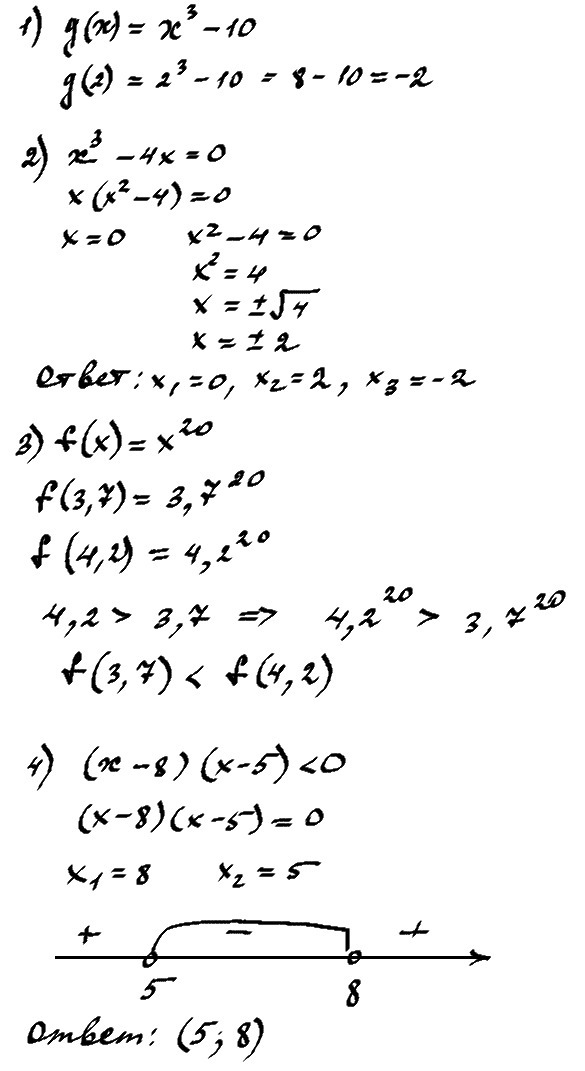 1) g(x) = x³ - 10
g(2) = 2³ - 10 = 8 - 10 = -2
2) x³ - 4x = 0
x(x² - 4) = 0
x = 0 x² - 4 = 0
x² = 4
x = ±√4
x = ± 2
Ответ: x₁ = 0, x₂ = 2, x₃ = -2
3) f(x) = x²⁰
f(3,7) = 3,7²⁰
f(4,2) = 4,2²⁰
4,2 > 3,7 => 4,2²⁰ > 3,7²⁰
f(3,7) < f(4,2)
4) (x - 8)(x - 5) < 0
(x - 8)(x - 5) = 0
x₁ = 8 x₂ = 5
+ - +
5 8
Ответ: (5; 8)